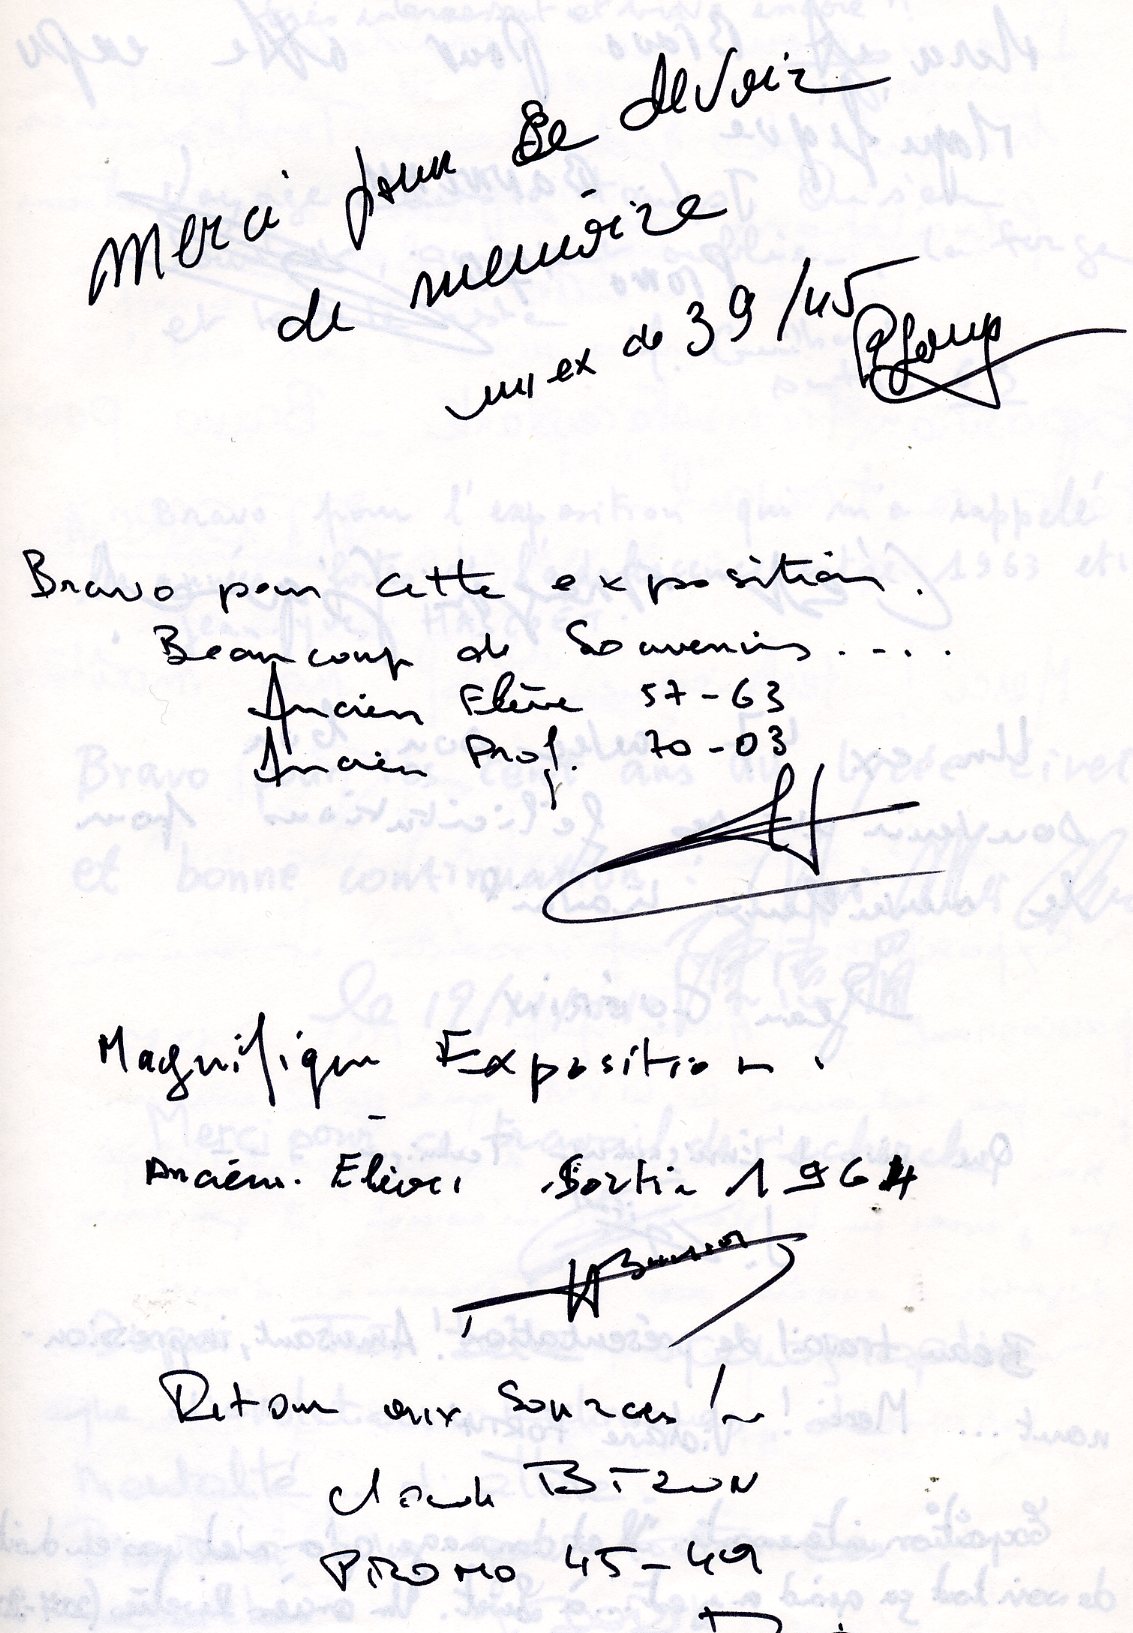 Merci pour ce devoir
de mémoire
un ex de 39/45
Bravo pour cette exposition.
Beaucoup de Souvenirs....
Ancien Elève 57-63
Ancien Prof. 70-03
Magnifique Exposition.
Ancien Elève Sortie 1964
Retour aux Sources!
Claude
PROMO 45-49